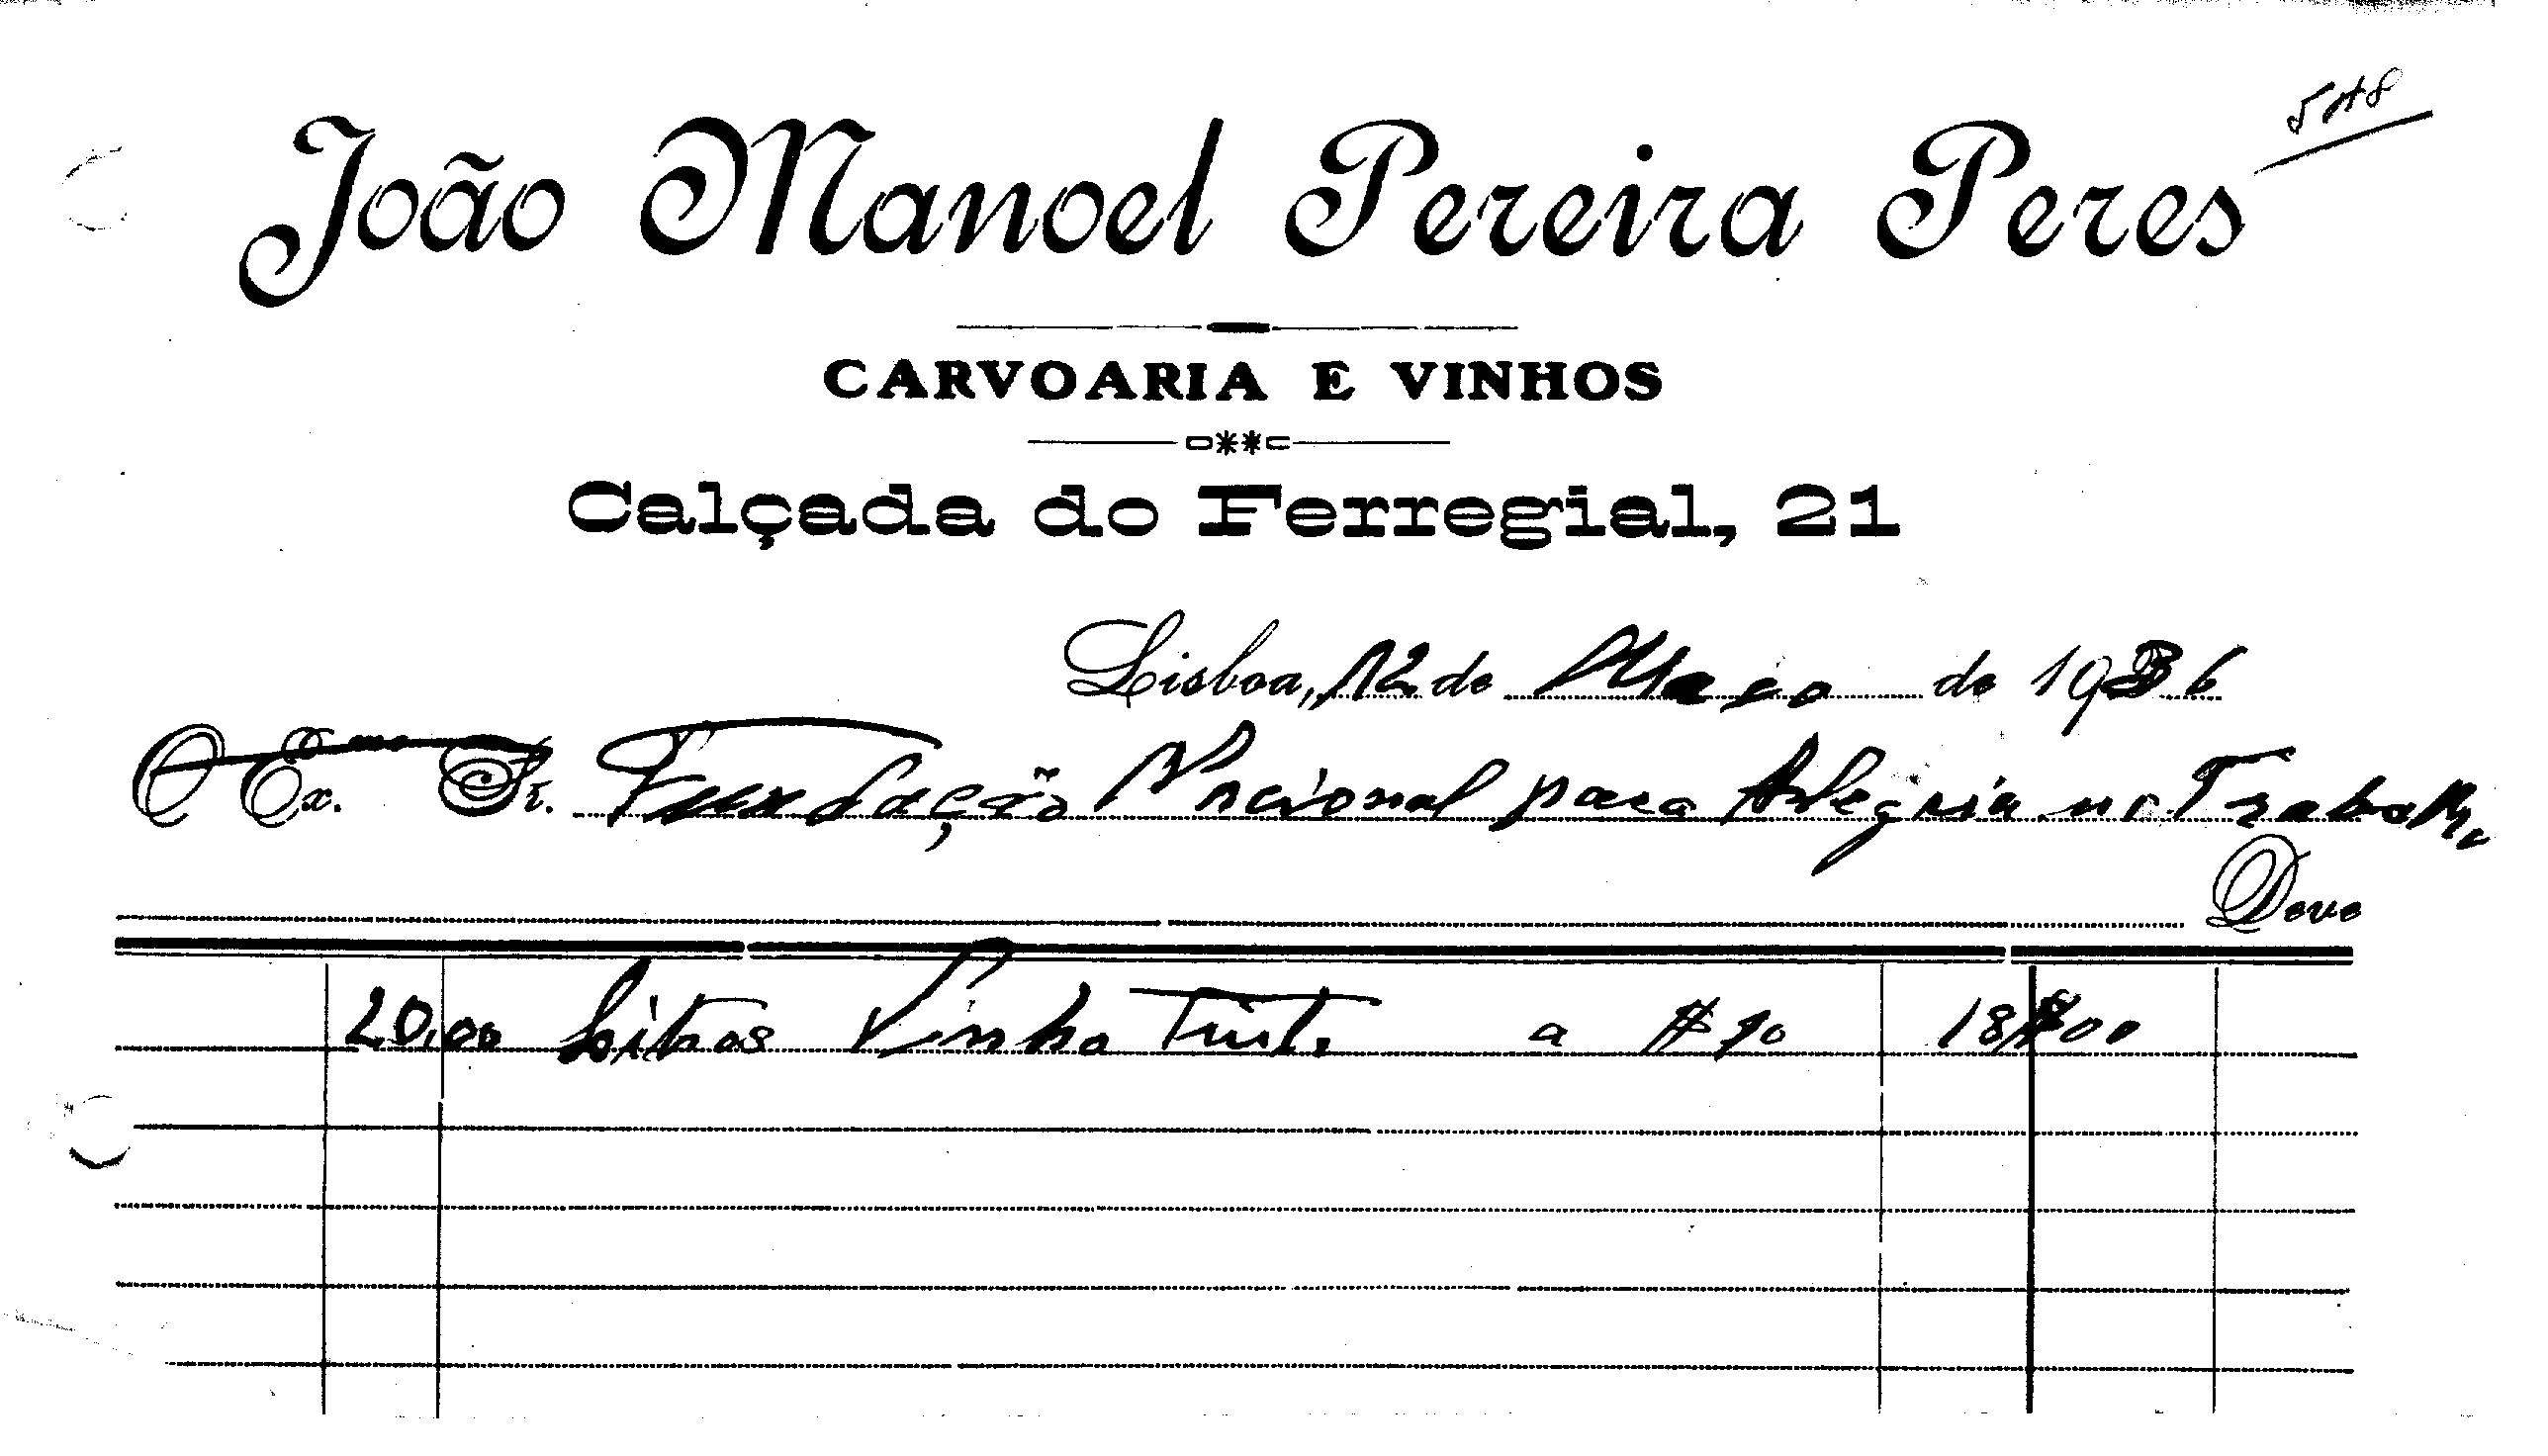 548
João Manoel Pereira Peres
CARVOARIA E VINHOS
Calçada do Ferregial, 21
Lisboa, 12 de Março de 1936
O Ex.mo Sr. Fundação Nacional para Alegria no Trabalho
Deve
20,00 Litros Vinho Tinto a $90 18$00